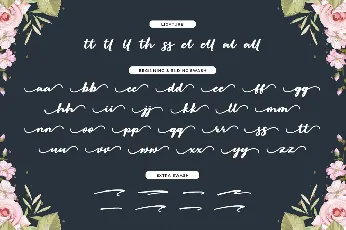 LIGATURE
tt tf lf th ss et ell al all
BEGINNING & ENDING SWASH
aa bb cc dd ee ff gg
hh ii jj kk ll mm
nn oo pp qq rr ss tt
uu vv ww xx yy zz
EXTRA SWASH